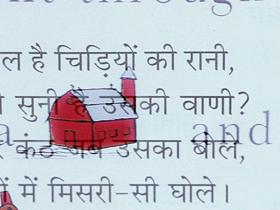 ल है चिड़ियों की रानी,
सुनी है उसकी वाणी?
and
कंठ जब उसका बोले,
में मिसरी-सी घोले।